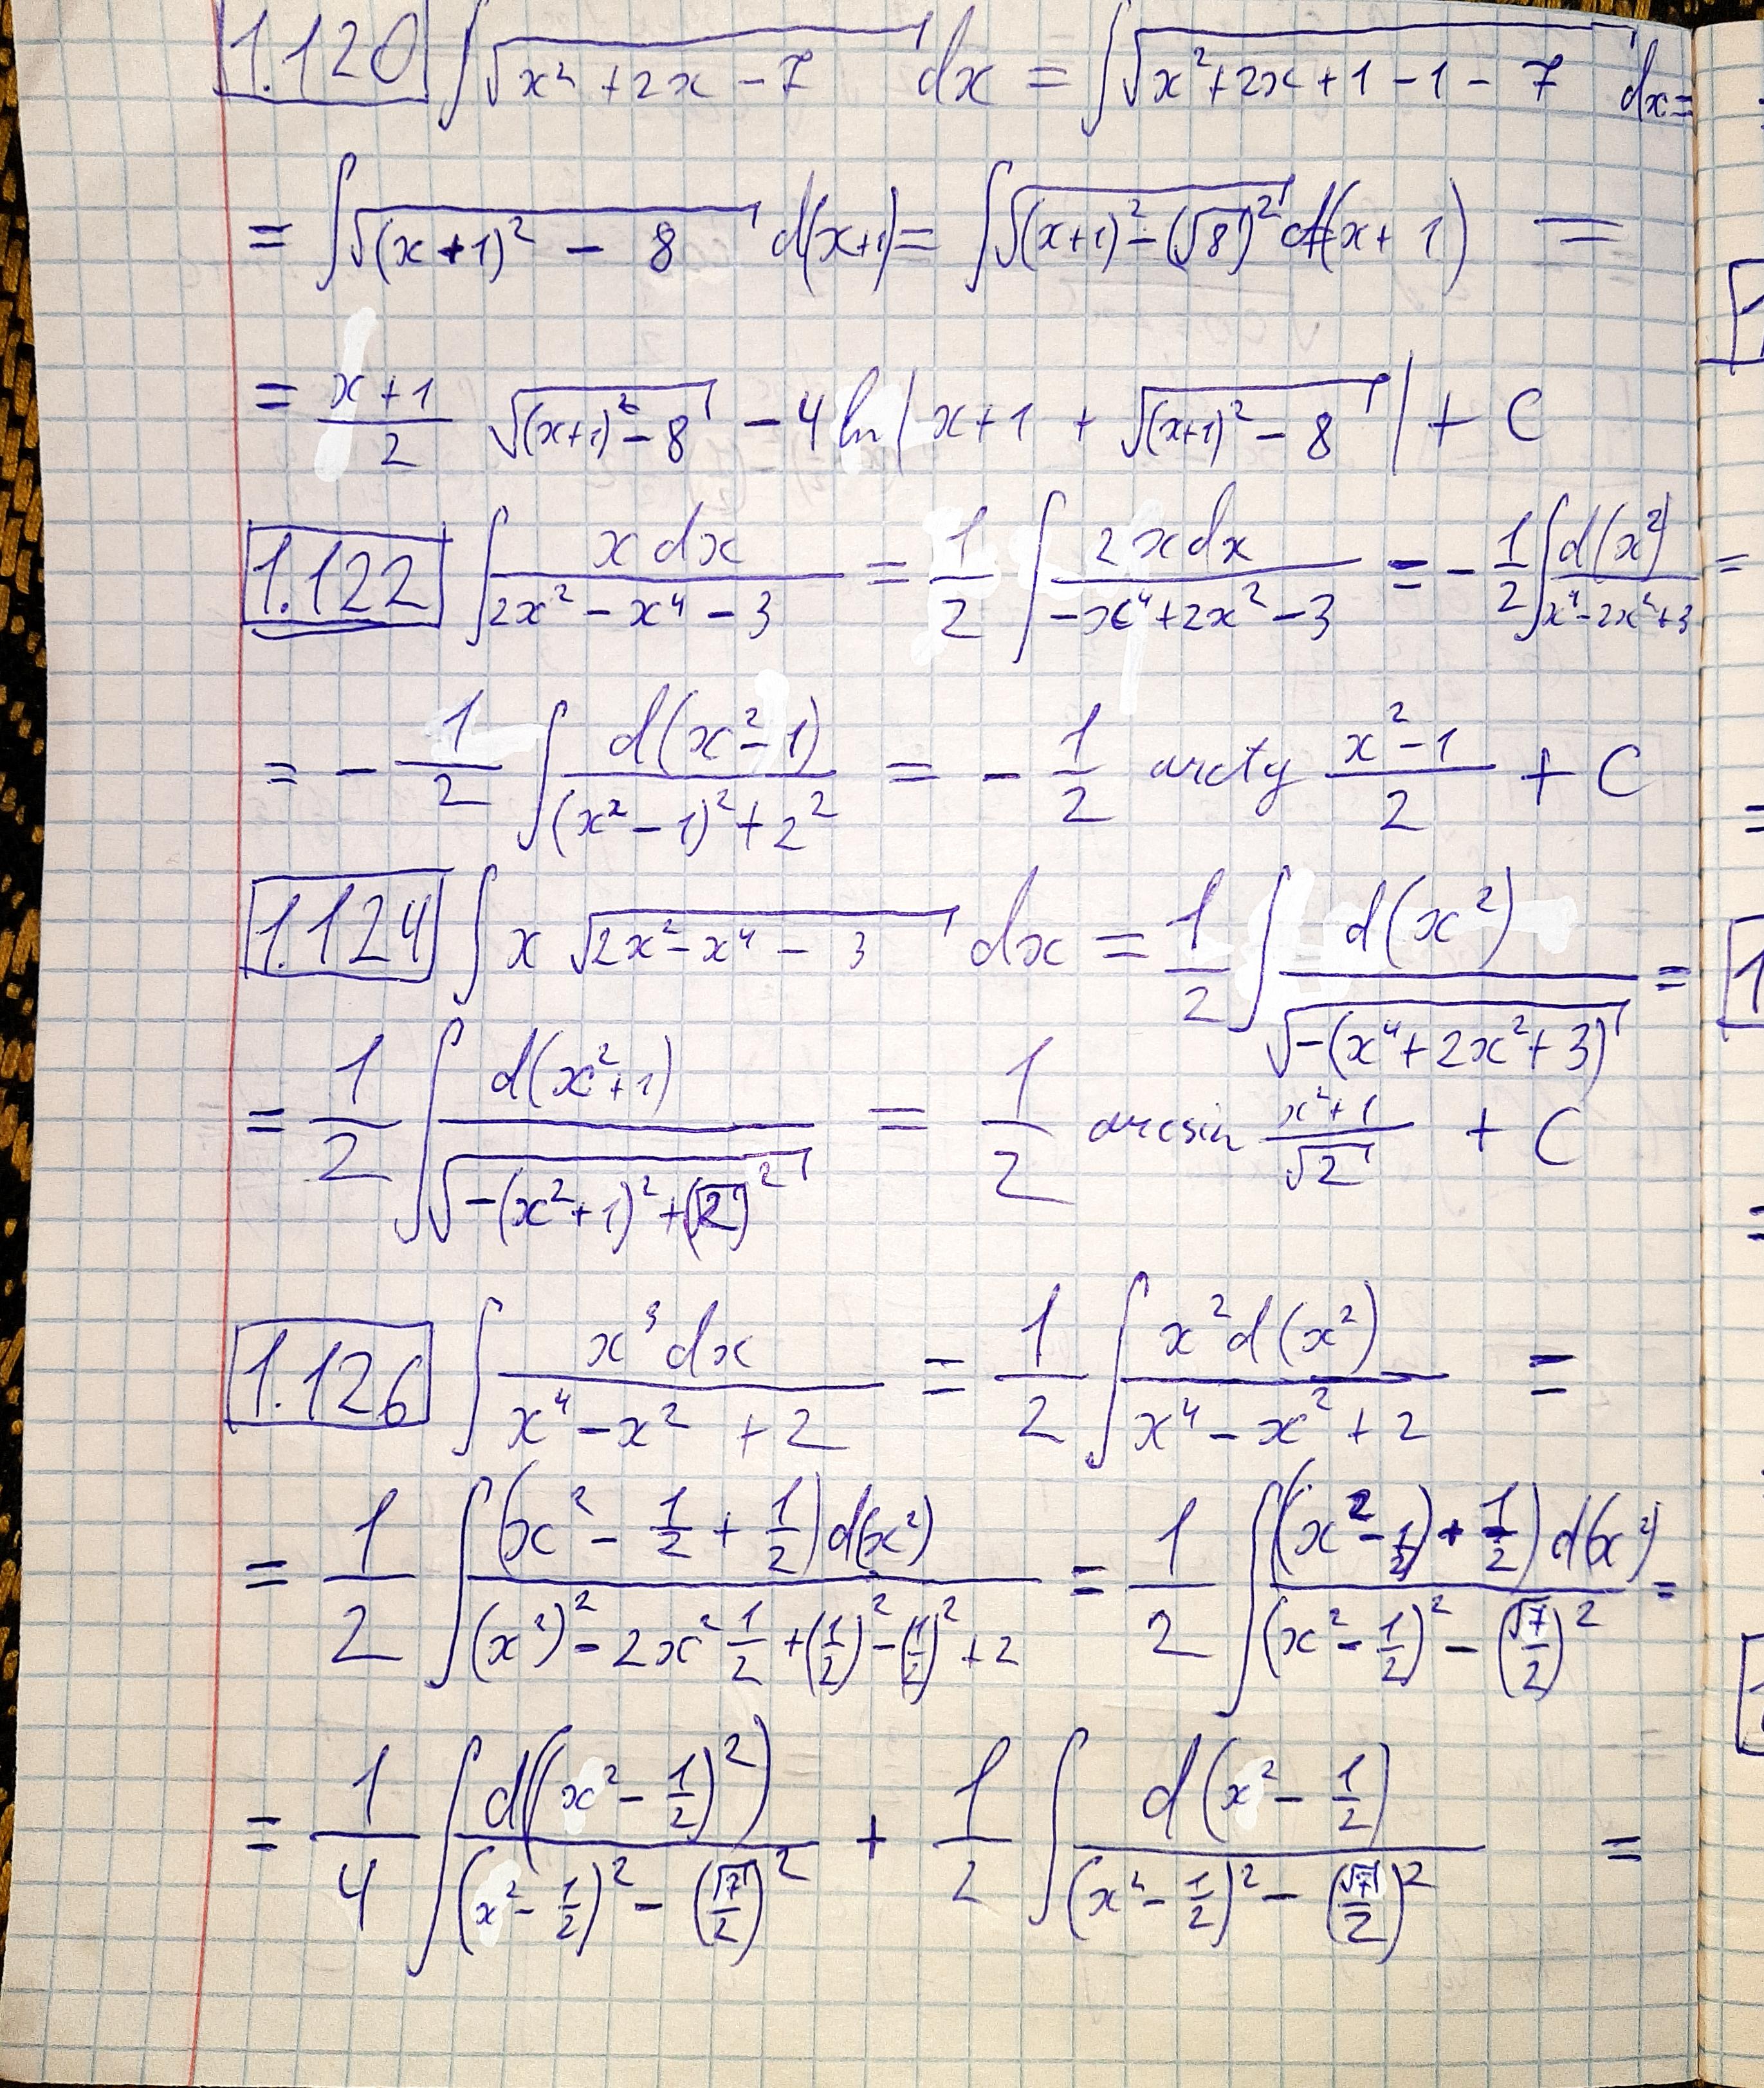 1.120 ∫√(x²+2x-7) dx = ∫√(x²+2x+1-1-7) dx =
= ∫√((x+1)²-8) d(x+1) = ∫√((x+1)²-(√8)²) d(x+1) =
= (x+1)/2 √((x+1)²-8) - 4 ln|x+1+√((x+1)²-8)| + C
1.122 ∫ x dx/(2x²-x⁴-3) = 1/2 ∫ 2x dx/(-x⁴+2x²-3) = -1/2 ∫ d(x²)/(x⁴-2x²+3) =
= -1/2 ∫ d(x²-1)/((x²-1)²+2²) = -1/2 arctg (x²-1)/2 + C
1.124 ∫ x √(2x²-x⁴-3) dx = 1/2 ∫ d(x²)/√(-(x⁴+2x²+3)) =
= 1/2 ∫ d(x²+1)/√(-(x²+1)²+(√2)²) = 1/2 arcsin (x²+1)/√2 + C
1.126 ∫ x³ dx/(x⁴-x²+2) = 1/2 ∫ x² d(x²)/(x⁴-x²+2) =
= 1/2 ∫ (x²-1/2+1/2) d(x²)/((x²)²-2x² 1/2+(1/2)²-(1/2)²+2) = 1/2 ∫ ((x²-1/2)+1/2) d(x²)/((x²-1/2)²-(√7/2)²) =
= 1/4 ∫ d((x²-1/2)²)/((x²-1/2)²-(√7/2)²) + 1/2 ∫ d(x²-1/2)/((x²-1/2)²-(√7/2)²) =